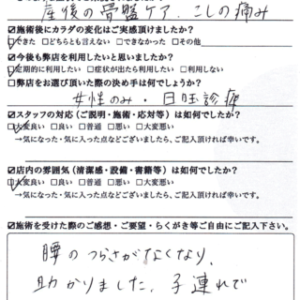 産後の骨盤ケア、こしの痛み
☑施術後にカラダの変化はご実感頂けましたか?
☑できた □どちらとも言えない □できなかった □その他
☑今後も弊店を利用したいと思いましたか?
☑定期的に利用したい □症状が出たら利用したい □利用しない
□弊店をお選び頂いた際の決め手は何でしょうか?
女性のみ・日曜診療
☑スタッフの対応(ご説明・施術・応対等)は如何でしたか?
☑大変良い □良い □普通 □悪い □大変悪い
→気になった・気に入った点などございましたら、ご記入頂ければ幸いです。
☑店内の雰囲気(清潔感・設備・書籍等)は如何でしたか?
☑大変良い □良い □普通 □悪い □大変悪い
→気になった・気に入った点などございましたら、ご記入頂ければ幸いです。
☑施術を受けた際のご感想・ご要望・らくがき等ご自由にご記入下さい。
腰のつらさがなくなり、
助かりました。子連れで